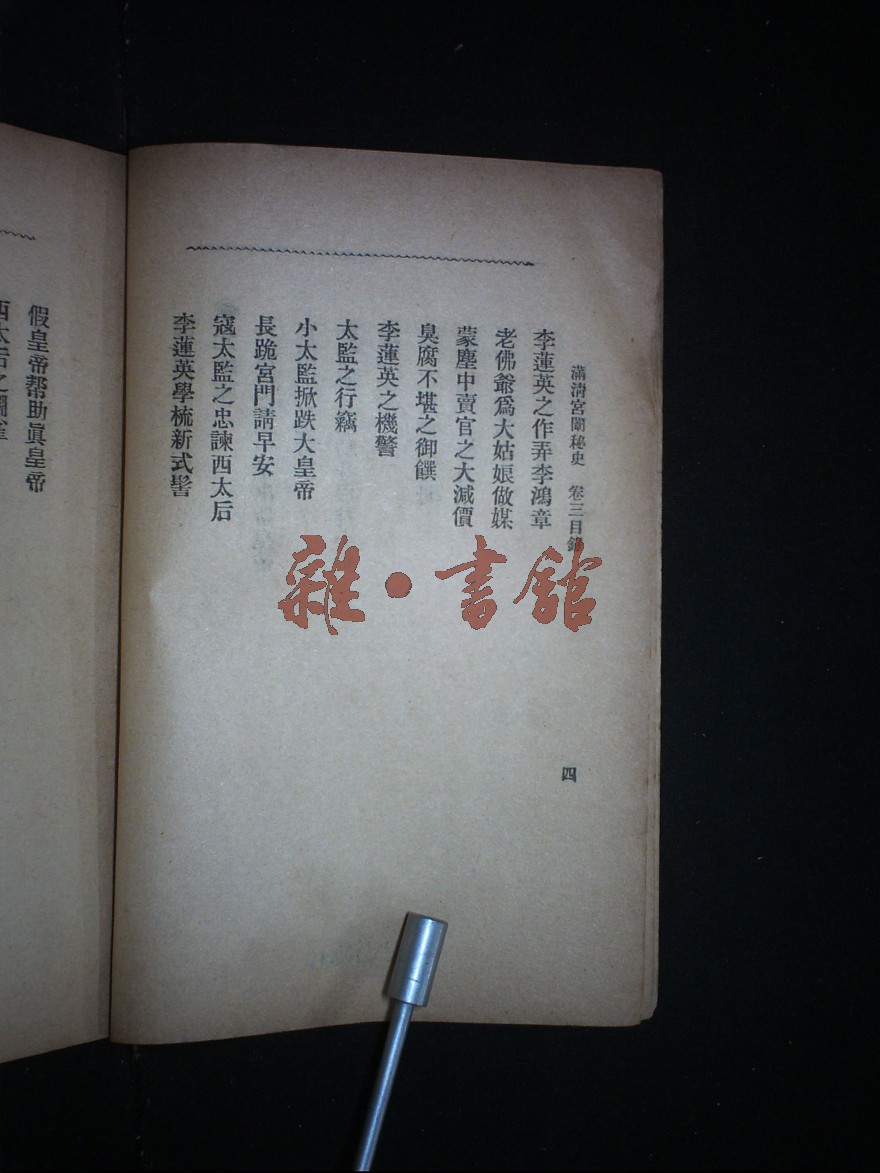 滿淸宮闈秘史 卷三目錄
四
李蓮英之作弄李鴻章
老佛爺爲大姑娘做媒
蒙塵中賣官之大減價
臭腐不堪之御饌
李蓮英之機警
太監之行竊
小太監掀跌大皇帝
長跪宮門請早安
寇太監之忠諫西太后
李蓮英學梳新式髻
假皇帝帮助眞皇帝
西太后之
雜·書舘